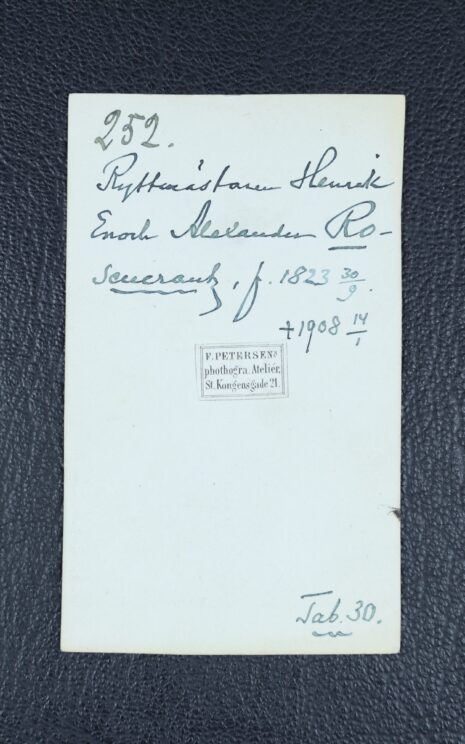 252.
Ryttmästaren Henrik
Enoch Alexander Ro-
sencrantz, f. 1823 30/9.
+1908 14/1
F. PETERSENS
phothogra. Atelier.
St. Kongensgade 21.
Tab. 30.